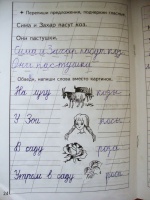 Перепиши предложения, подчеркни гласные.
Сима и Захар пасут коз.
Они пастушки.
Сима и Захар пасут коз.
Они пастушки
Обведи, напиши слова вместо картинок.
На лугу козы
У Зои косы
В саду роза
Утром в саду роса
24